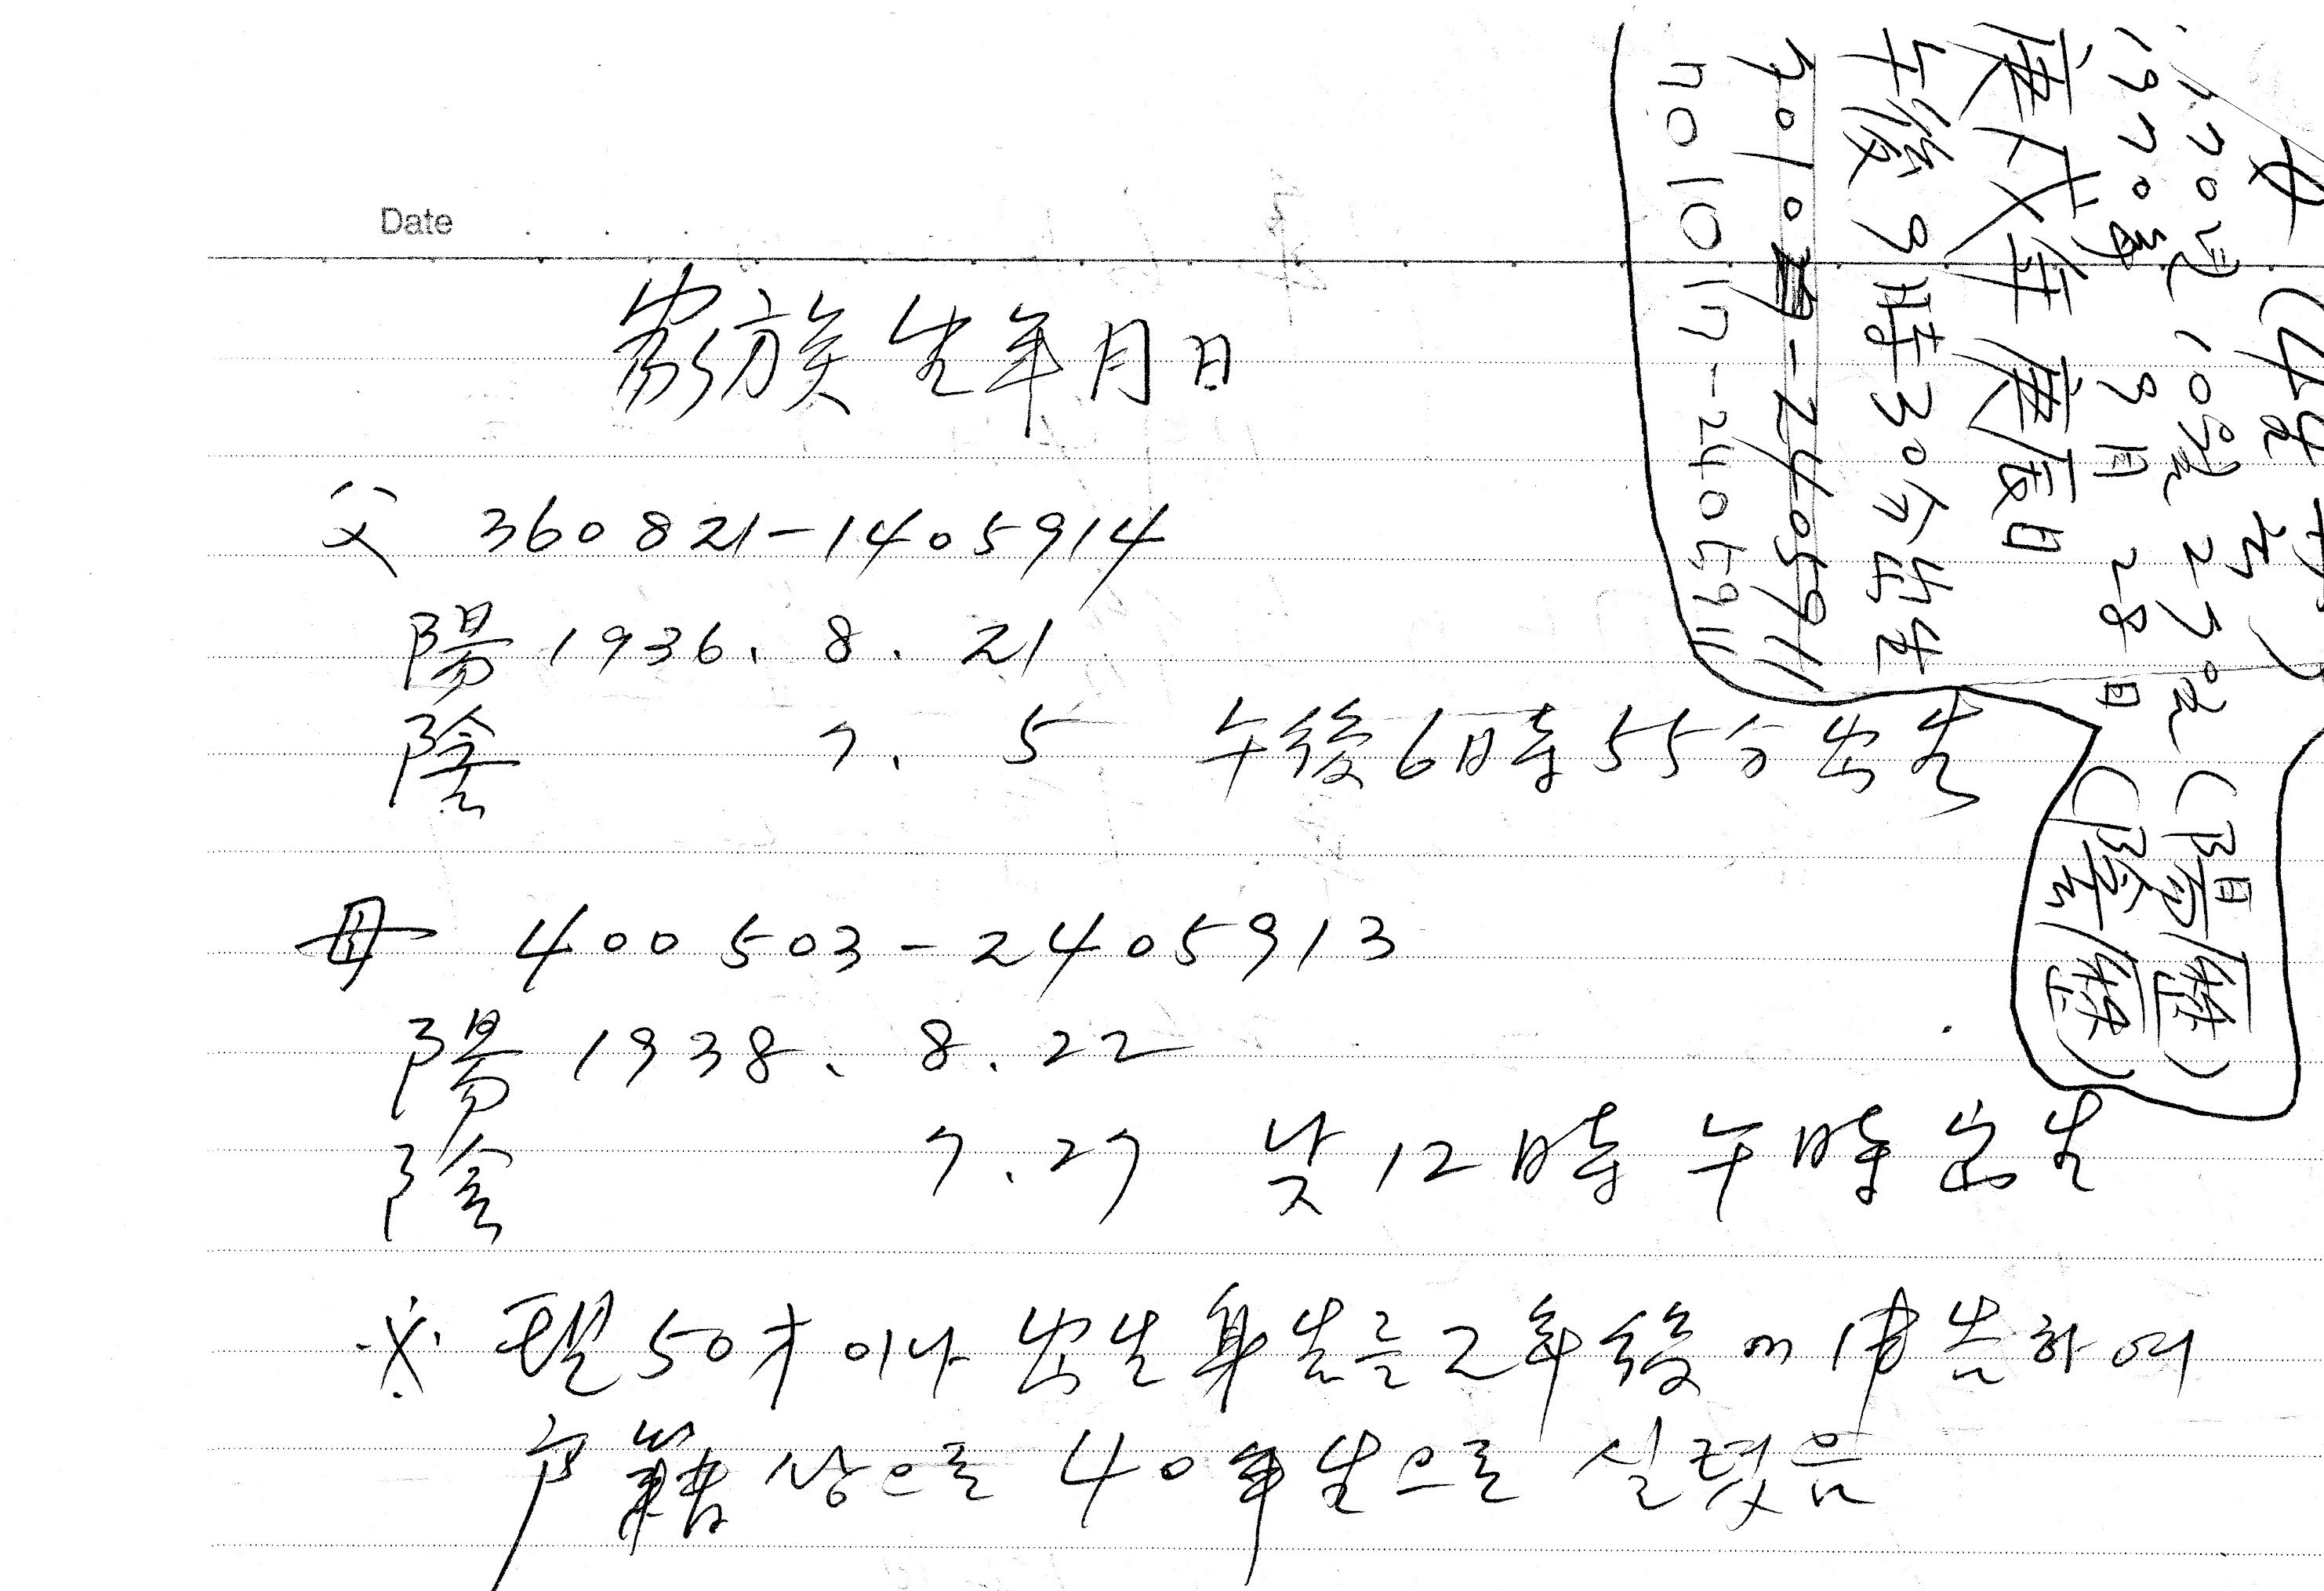 Date
家族 生年月日
父 360821-1405914
陽 1936. 8. 21
陰 7. 5 午後6時55分出生
母 400503-2405913
陽 1938. 8. 22
陰 7.27 낮 12時 午時 出生
※ 現50才이나 出生申告를 2年後에 申告하여
戶籍상으로 40年生으로 실렸음
女
1970년 10월 27일 (陽曆)
1970年 9月 28日 (陰曆)
庚戌年 庚辰日
午後 9時30分出生
701027-2405911
701017-2405911